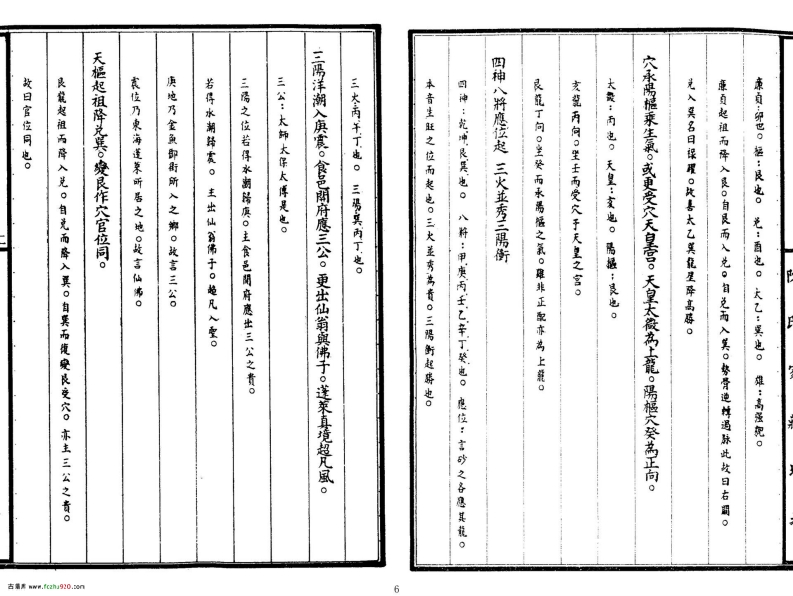 廉貞：卯也。樞：艮也。兌：酉也。太乙：巽也。雄：高强貌。
廉貞起祖而降入艮。自艮而入兌。自兌而入巽。勢骨逆轉過脉此故曰右關。
兌入巽名曰保躍。故喜太乙巽龍星降高勝。
穴承陽樞乘生氣。或更受穴天皇宮。天皇太微為上龍。陽樞穴癸為正向。
太微：丙也。天皇：亥也。陽樞：艮也。
亥龍丙向。坐壬而受穴于天皇之宮。
艮龍丁向。坐癸而承陽樞之氣。雖非正配亦為上龍。
四神八將應位起 三火並秀三陽衝
四神：乾坤艮巽也。八將：甲庚丙壬乙辛丁癸也。應位：言砂之各應其龍。
本音生旺之位而起也。三火並秀為貴。三陽衝起勝也。
三火丙午丁也。三陽巽丙丁也。
三陽洋潮入庚震。食邑開府應三公。更出仙翁與佛子。蓬萊真境超凡風。
三公：太師太保太傅是也。
三陽之位若得水潮歸庚。主食邑開府應出三公之貴。
若得水潮歸震。主出仙翁佛子。超凡入聖。
庚地乃金魚御街所入之鄉。故言三公。
震位乃東海蓬萊所居之地。故言仙佛。
天樞起祖降兌巽。變艮作穴官位同。
艮龍起祖而降入兌。自兌而降入巽。自巽而復變艮受穴。亦主三公之貴。
故曰官位同也。
古籍库 www.fczhu920.com
6